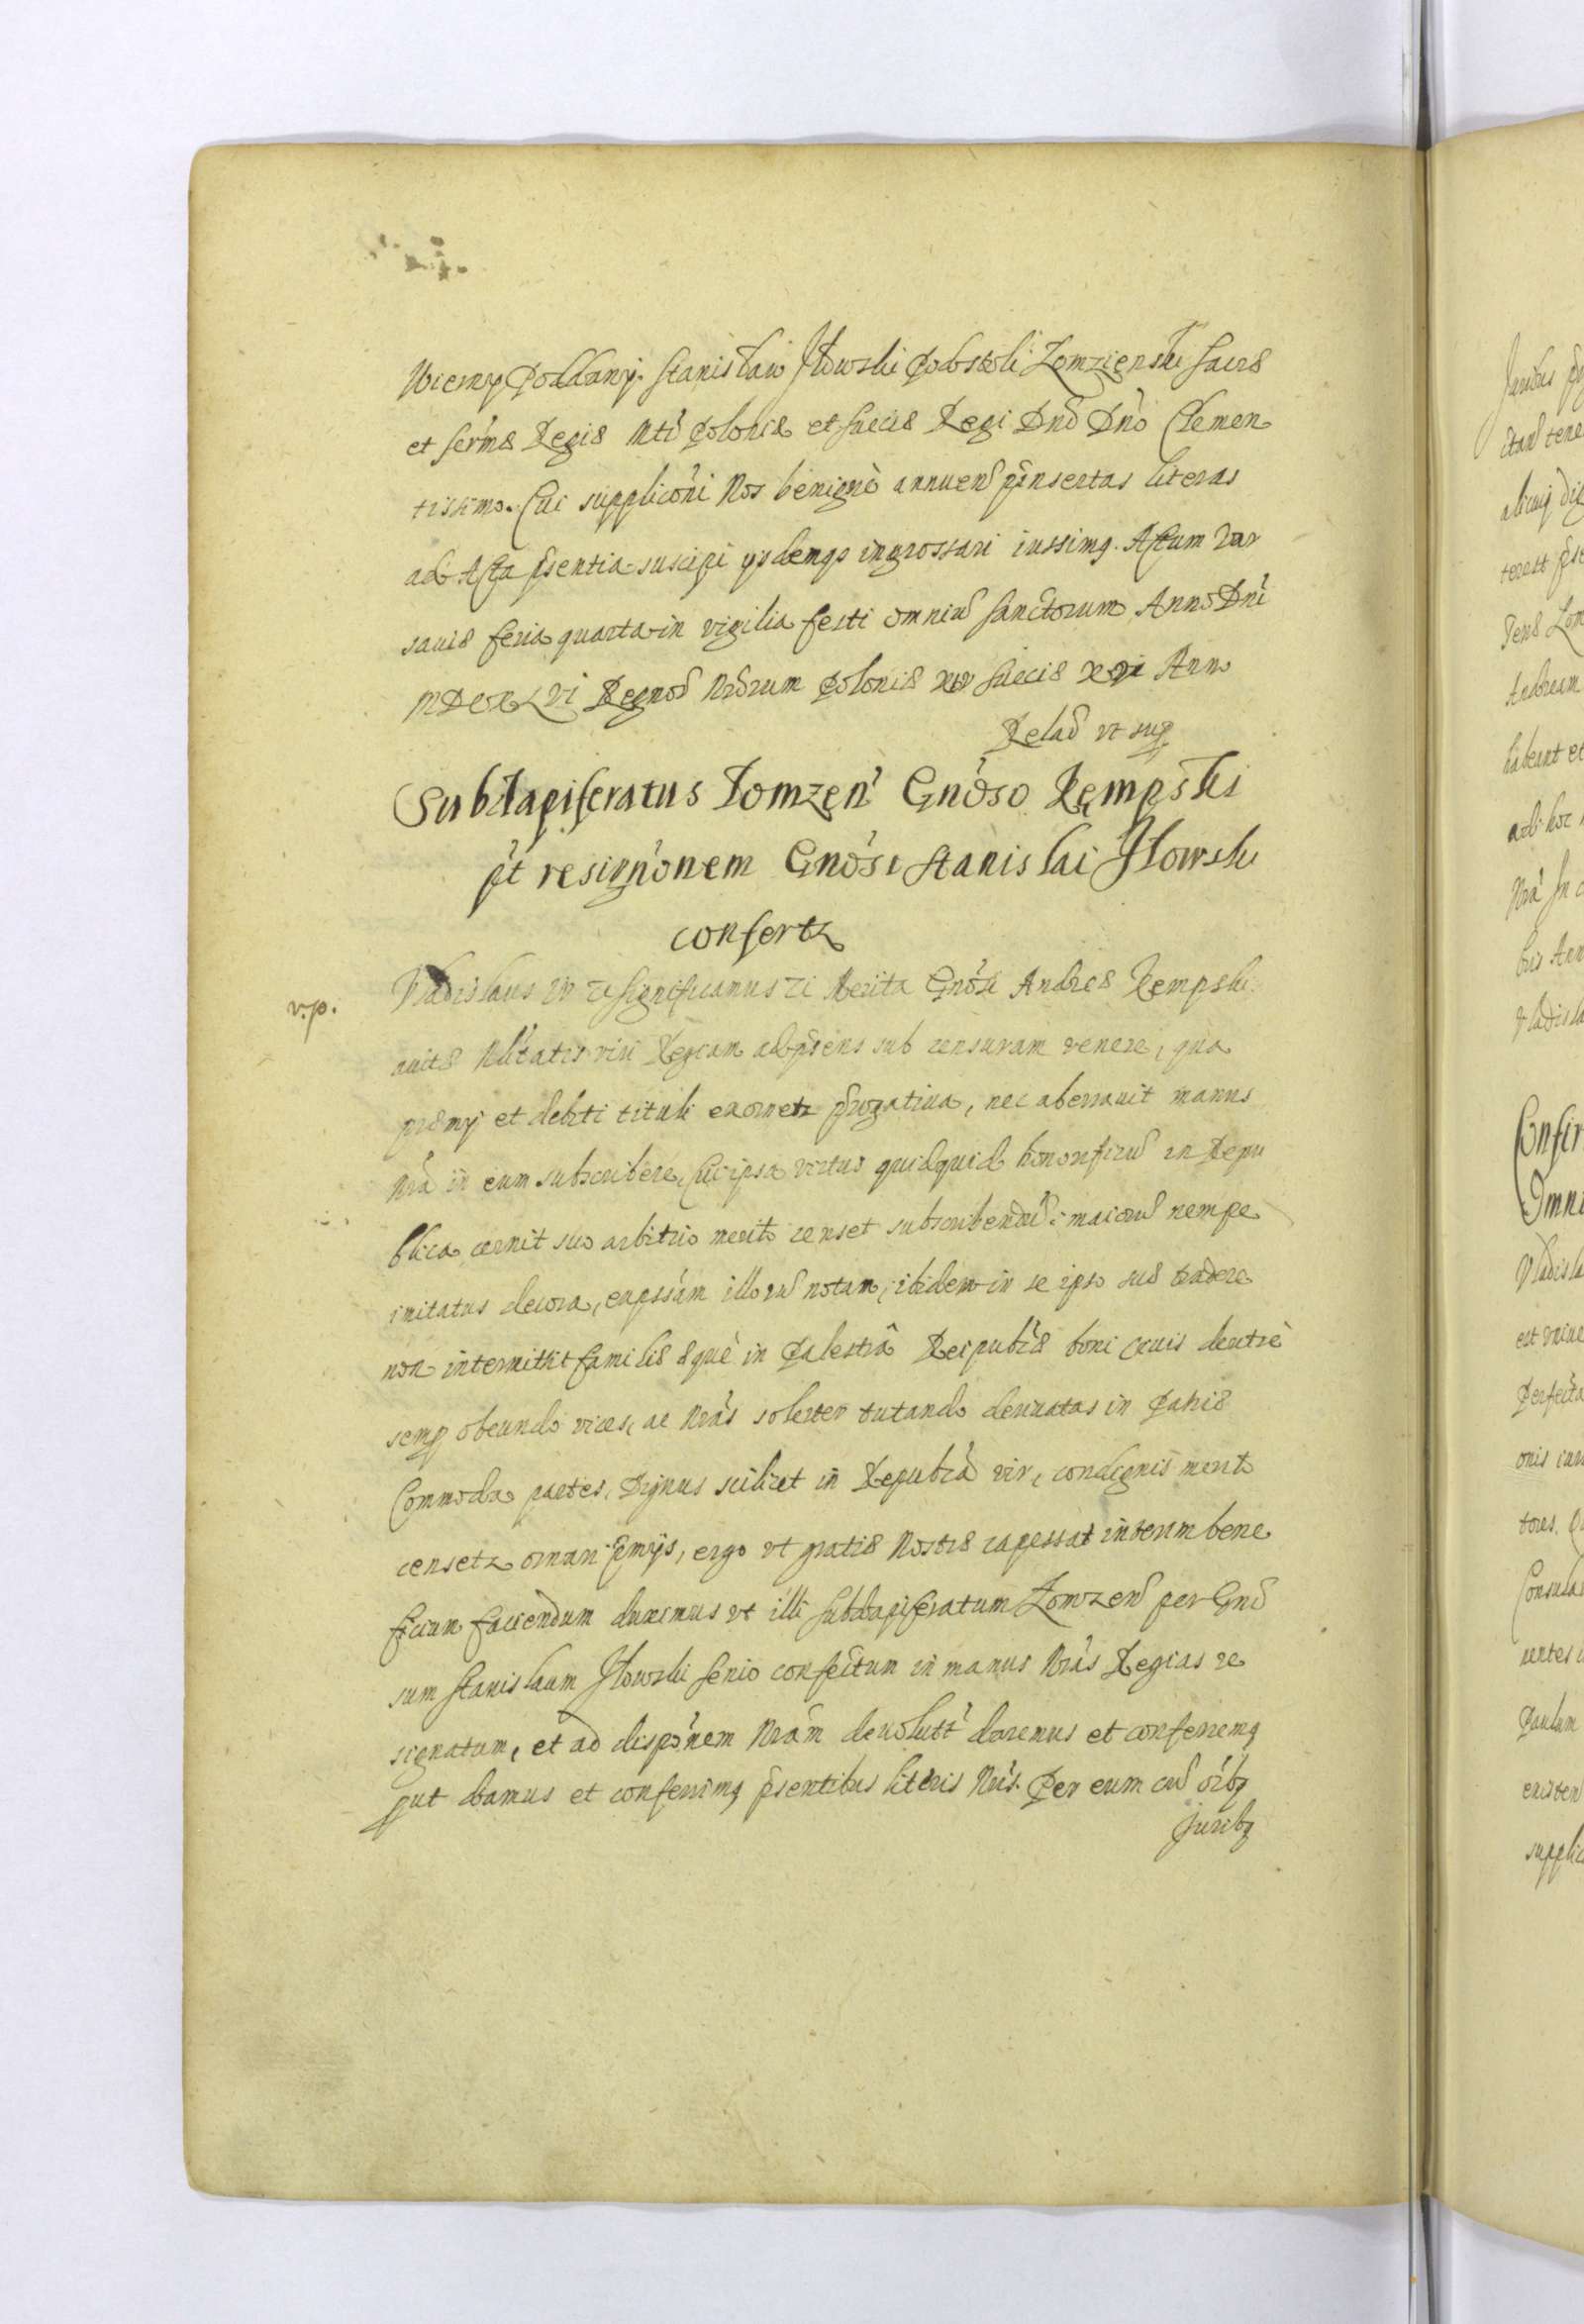 Wierny Poddany Stanisław Iłowski Podstoli Łomzienski Sacræ
et Sermæ Regiæ Mtti Poloniæ et Sueciæ Regi Dno Dno Clemen
tissimo. Cui supplicõni Nos benignè annuen pinsertas literas
ad Acta psentia suscipi ysdemqs ingrossari iussimq. Actum Var
saviæ feria quarta in vigilia festi omniũ Sanctorum Anno Dni
MDCXLVI Regnor Nrorum Poloniæ XIV Sueciæ XVI Anno
Relaõ vt sup
Subdapiferatus Łomzen Gnoso Rempski
pt resignonem Gnosi Stanislai Iłowski
confertr
v.p.
Vladislaus IV etc Significamus etc Merita Gnosi Andreæ Rempski
avitæ Nlitatis viri Regiam ad psens sub censuram venere, qua
præmij et debiti tituli exornetr prrogativa, nec aberravit manus
Nra in eum subscribere, Cui ipsa virtus quidquid honorificũ in Repu
blica cernit suo arbitrio meritò censet subscribendũ: maiorũ nempe
imitatus decora, expssam illorũ notam, ibidem in se ipso suæ tradere
non intermittit familiæ æquè in Palestrâ Reipublcæ boni civis dextrè
semp obeundo vices, ac Nras solerter tutando derivatas in Patriæ
Commoda partes. Dignus scilicet in Republcâ vir, condignis merito
censetr ornari pmijs, ergo vt gratiæ Nostræ capessat interim bene
ficium faciendum duximus vt illi Subdapiferatum Łomzen per Gno
sum Stanislaum Iłowski Senio confectum in manus Nras Regias re
signatum, et ad disponem Nram devolutt daremus et conferremq
put damus et conferimq psentibus literis Nris. Per eum cũ oibq
Juribq